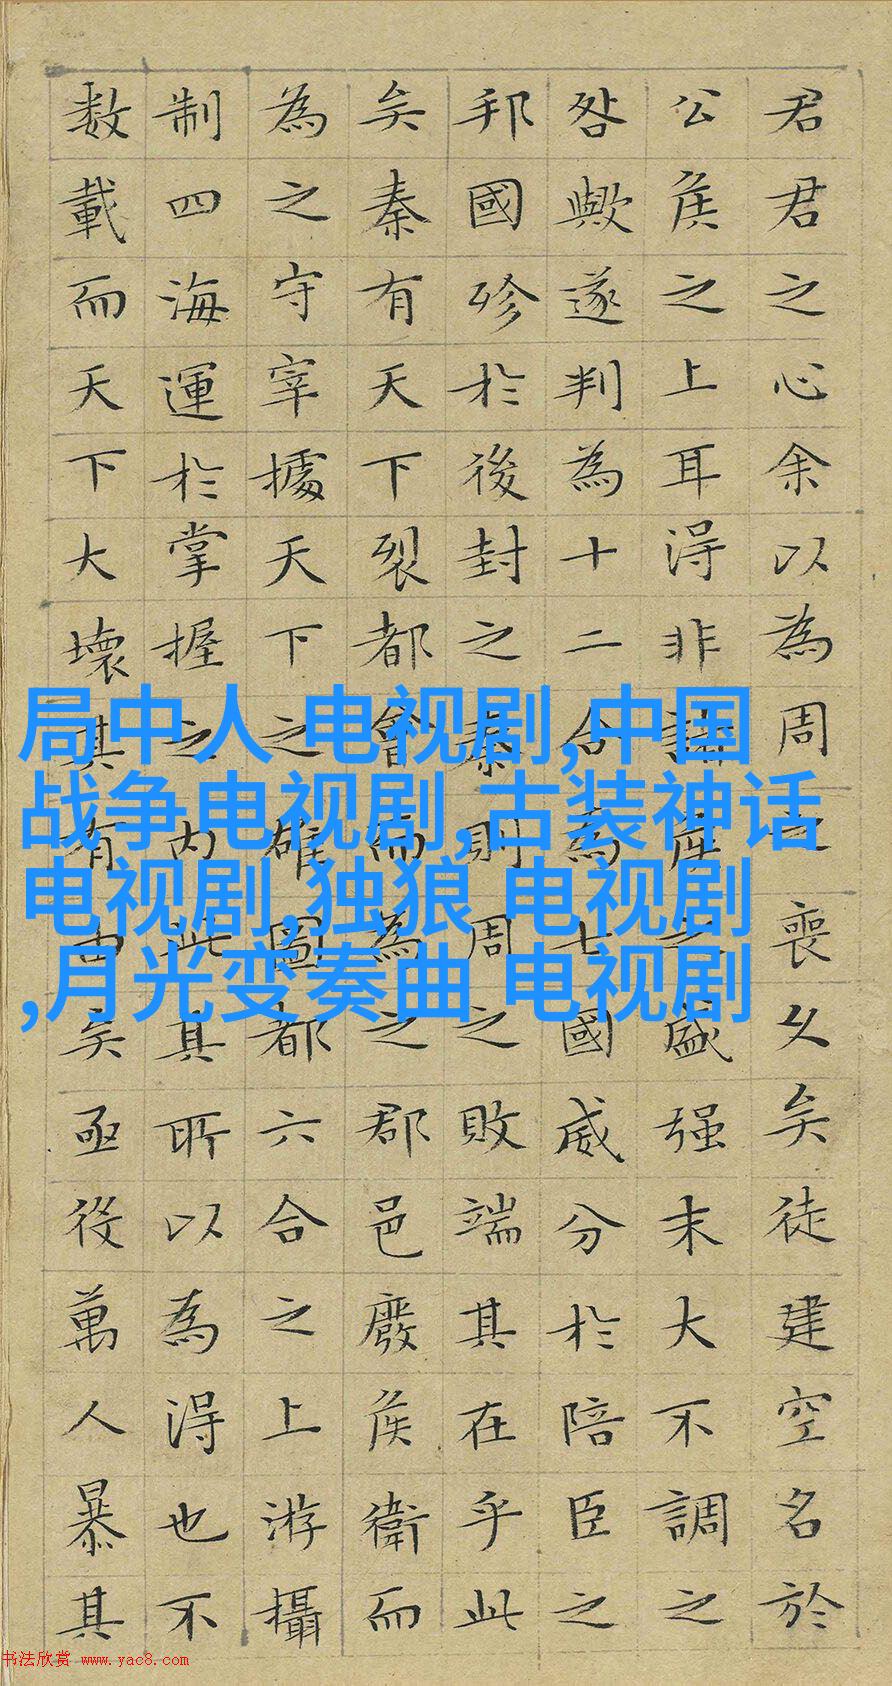 君君之心余以為周之喪久矣徒建空名於
公侯之上耳得非諸侯之盛强末大不調之
咎歟遂判為十二合為七國威分於陪臣之
邦國殄於後封之秦則周之敗端其在乎此
矣秦有天下裂都會而為之郡邑廢侯衛而
為之守宰據天下之雄圖都六合之上游攝
制四海運於掌握之內此其所以為得也不
数載而天下大壞其有由矣亟役萬人暴其
局中人 电视剧,中国
战争电视剧,古装神话
电视剧,独狼 电视剧
,月光变奏曲 电视剧
书法欣赏 www.yac8.com